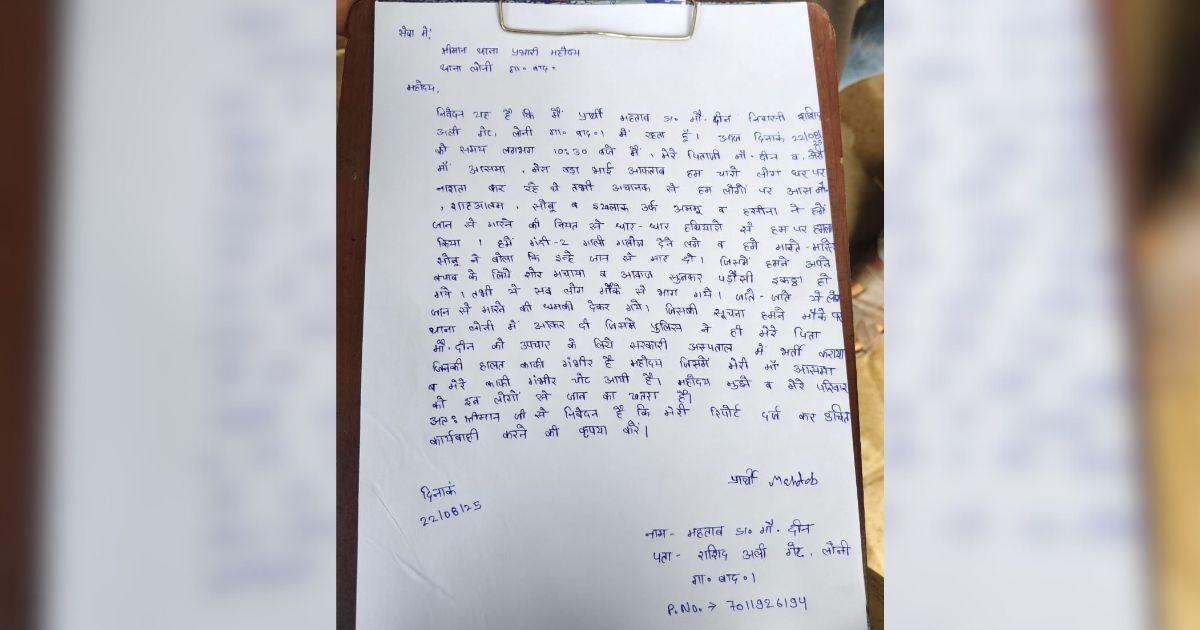 सेवा में!
श्रीमान थाना प्रभारी महोदय
थाना लोनी गा० बाद०
महोदय,
निवेदन यह है कि मैं प्रार्थी महताब S/o मौ. दीन निवासी राशिद
अली गेट, लोनी गा० बाद०। में रहता हूँ। आज दिनांक 22/08/
को समय लगभग 10:30 बजे में, मेरे पिताजी मौ. दीन व मेरी
माँ आसमा, मेरा बड़ा भाई आफताब हम चारो लोग घर पर
नाश्ता कर रहे थे तभी अचानक से हम लोगों पर आस मौ.
, शाहआलम, सोबू व इखलाक उर्फ अममू व हसीना ने हमें
जान से मारने की नियत से धार-धार हथियारो से हम पर हमला
किया। हमें गंदी-2 गाली गलोज देने लगे व हमे मारते-मारते
सोबू ने बोला कि इन्हे जान से मार दो। जिसमें हमने अपने
बचाव के लिये शोर मचाया व आवाज सुनकर पड़ौसी इकठ्ठा हो
गये। तभी ये सब लोग मौके से भाग गये। जाते-जाते ये लोग
जान से मारने की धमकी देकर गये। जिसकी सूचना हमने मौके पर
थाना लोनी में आकर दी जिसमे पुलिस ने ही मेरे पिता
मौ. दीन को उपचार के लिये सरकारी अस्पताल में भर्ती कराया
जिनकी हालत काफी गंभीर है महोदय जिसमें मेरी माँ आसमा
व मेरे काफी गंभीर चोट आयी है। महोदय मुझे व मेरे परिवार
को इन लोगों से जान का खतरा है।
अतः श्रीमान जी से निवेदन है कि मेरी रिपोर्ट दर्ज कर उचित
कार्यवाही करने की कृपया करें।
प्रार्थी Mehtab
दिनाकं
22/08/25
नाम- महताब S/o मौ. दीन
पता- राशिद अली गेट, लोनी
गा० बाद०।
P.No. → 7011926194